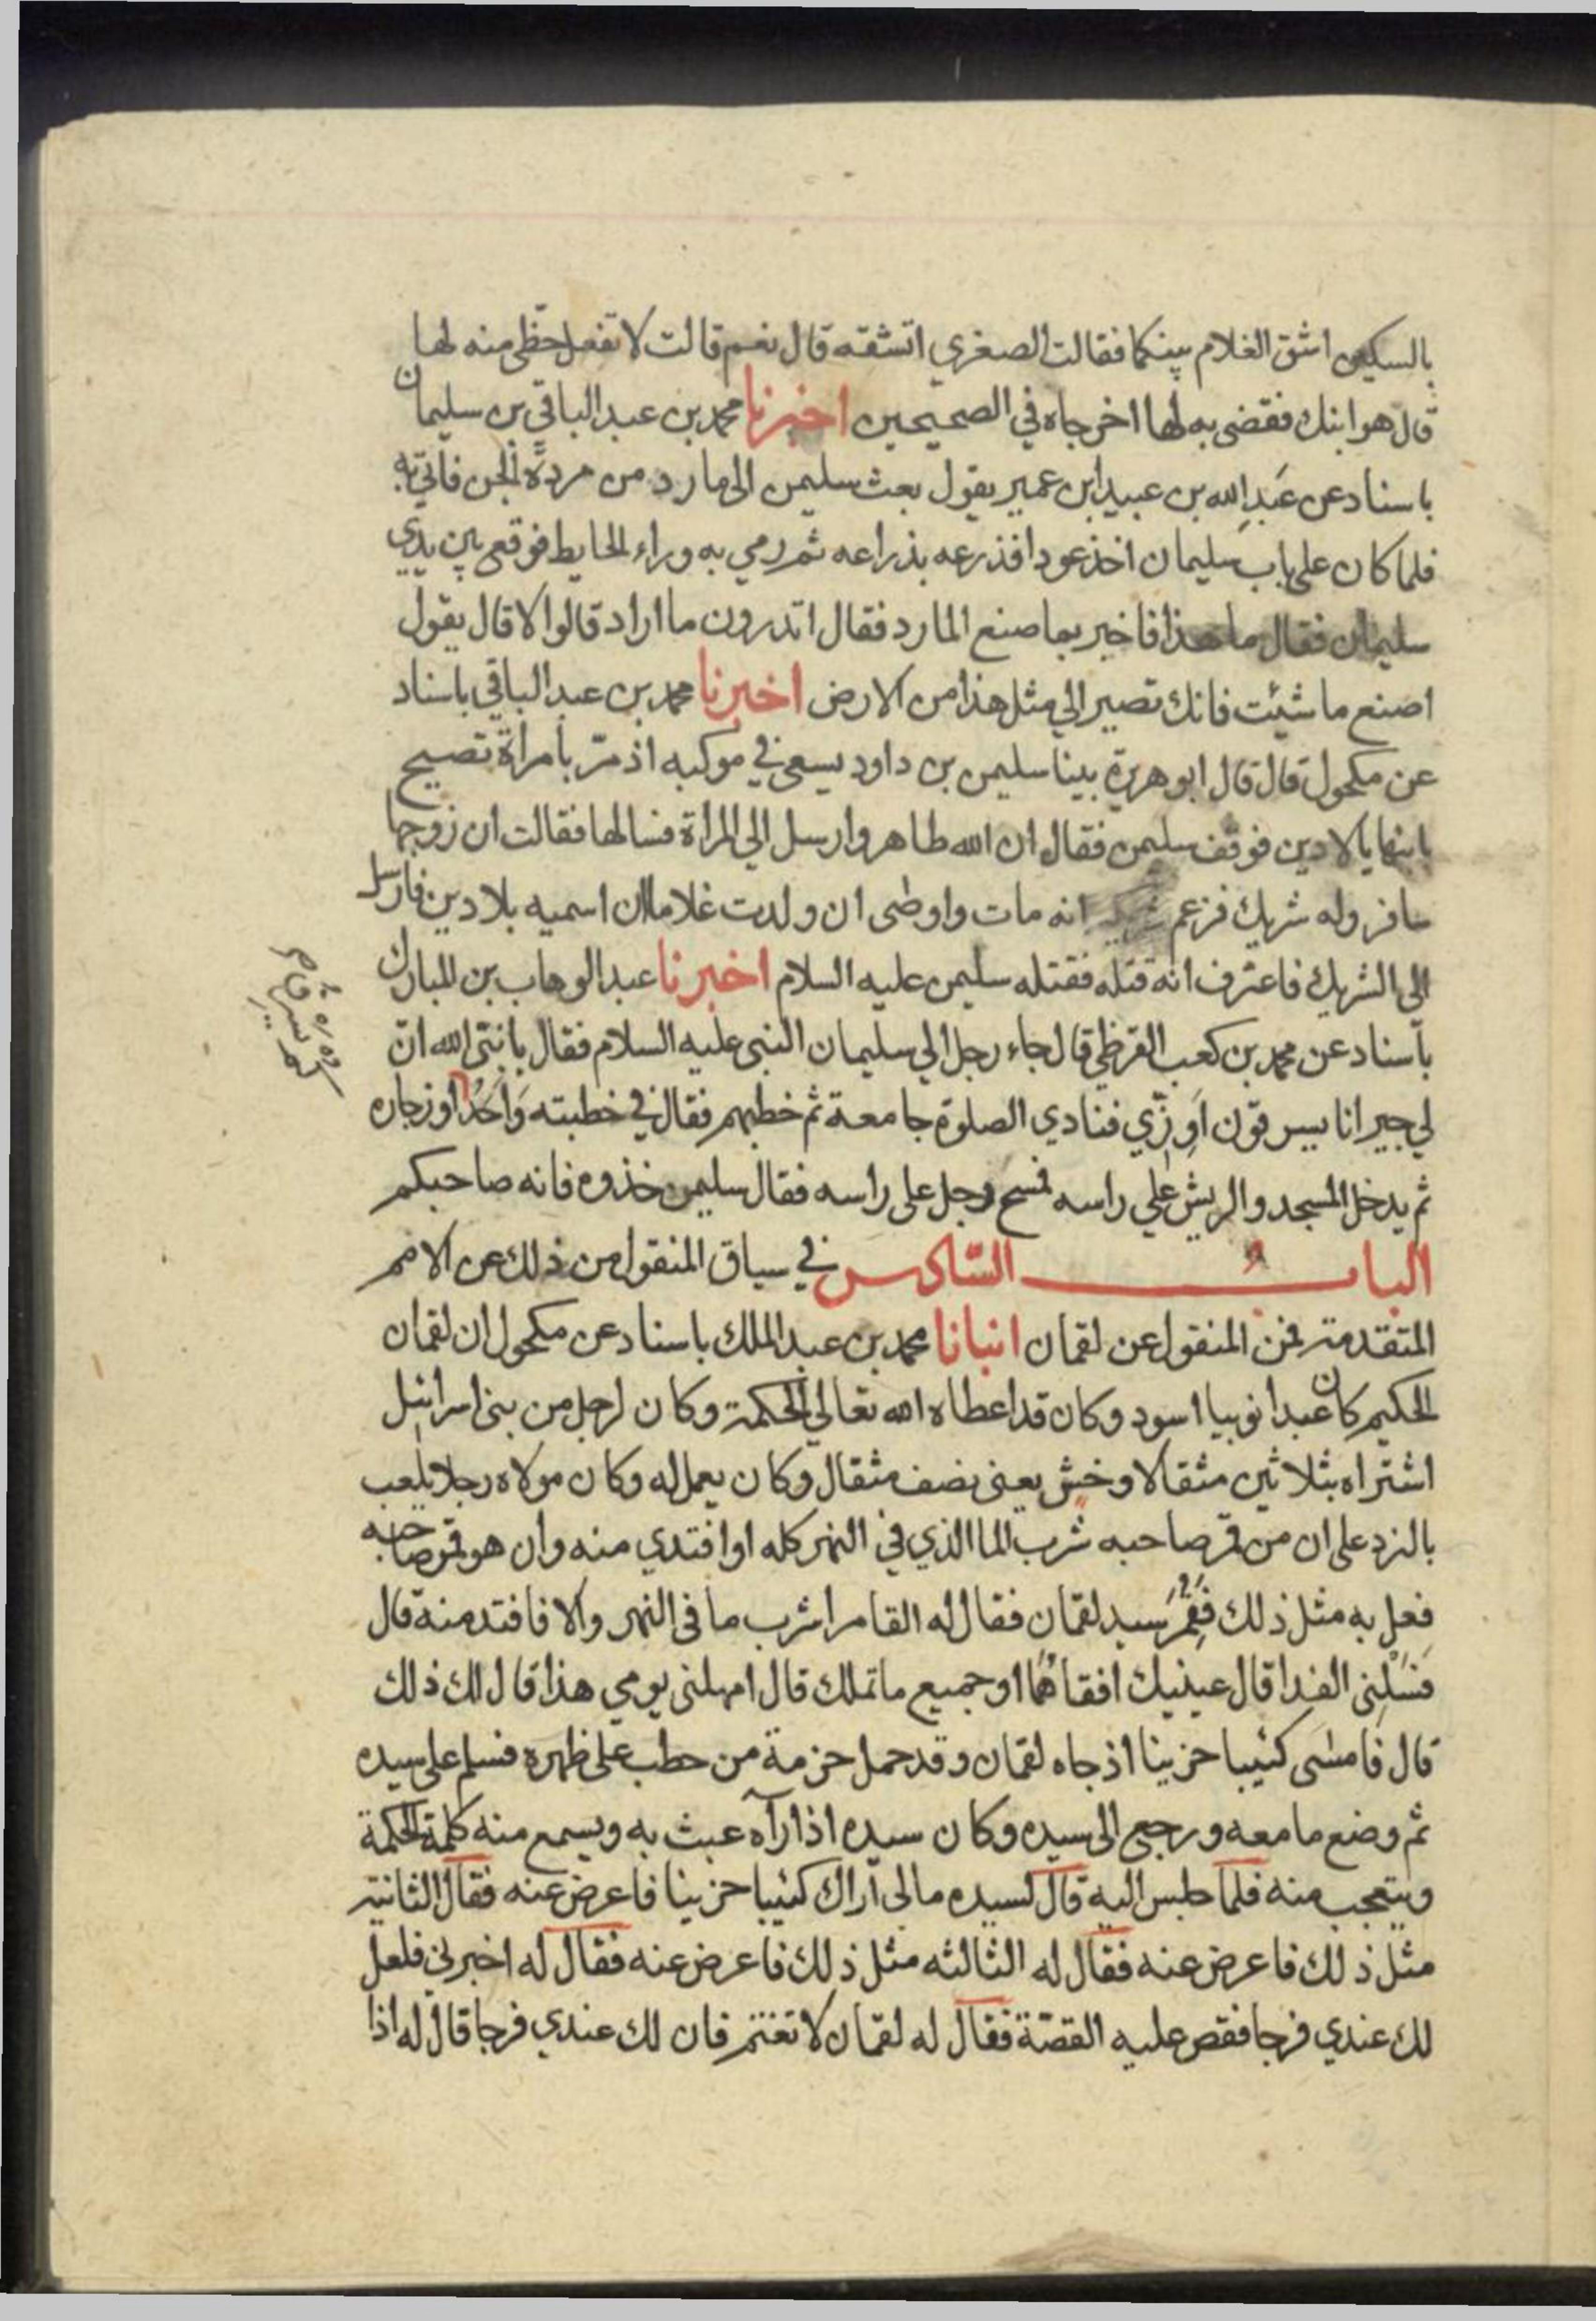 بالسكين اشق الغلام بينكما فقالت الصغري اتشقه قال نعم قالت لا تفعل حظى منه لها
قال هو ابنك فقضى به لها اخرجاه في الصحيحين اخبرنا محمد بن عبد الباقي بن سليمان
باسناد عن عَبدِ الله بن عبيد ابن عمير يقول بعث سليمن الى مارد من مردة الجن فاتي به
فلما كان على باب سليمان اخذ عودا فذرعه بذراعه ثم رمي به وراء الحايط فوقع بين يدي
سليمان فقال ما هذا فاخبر بما صنع المارد فقال اتدرون ما اراد قالوا لا قال يقول
اصنع ما شيئت فانك تصير الي مثل هذا من الارض اخبرنا محمد بن عبد الباقي باسناد
عن مكحول قال قال ابو هريرة بينا سليمن بن داود يسعى في موكبه اذ مرّ بامراة تصيح
بابنها يا لادين فوقف سليمن فقال ان الله ظاهر وارسل الي المراة فسالها فقالت ان زوجها
سافر وله شريك فزعم شريكه انه مات واوصى ان ولدت غلاما ان اسميه بلادين فارسل
الى الشريك فاعترف انه قتله فقتله سليمن عليه السلام اخبرنا عبد الوهاب بن المبارك
باسناد عن محمد بن كعب القرظي قال جاء رجل الي سليمان النبى عليه السلام فقال يا نبىّ الله انّ
لي جيرانا يسرقون اوِزّي فنادي الصلوة جامعة ثم خطبهم فقال في خطبته وَاحَدُكم اوز جاره
ثم يدخل المسجد والريش علي راسه فمسح رجل على راسه فقال سليمن خذوه فانه صاحبكم
البابُ السّادس في سياق المنقول من ذلك عن الامم
المتقدمة فمن المنقول عن لقمان انبانا محمد بن عبد الملك باسناد عن مكحول ان لقمان
الحكيم كان عبدا نوبيا اسود وكان قد اعطاه الله تعالي الحكمة وكان لرجل من بنى اسرائيل
اشتراه بثلاثين مثقالا وخش يعنى نصف مثقال وكان يعمل له وكان مولاه رجلا يلعب
بالنرد على ان من قمر صاحبه شرب الما الذي في النهر كله او افتدي منه وان هو قمر صاحبه
فعل به مثل ذلك فقُمِرَ سيد لقمان فقال له القامر اشرب ما في النهر والا فافتد منه قال
فسَلْنى الفدا قال عينيك افقاهُما او جميع ما تملك قال امهلنى يومي هذا قال لك ذلك
قال فامسَى كئيبا حزينا اذ جاه لقمان وقد حمل حزمة من حطب على ظهره فسلم على سيده
ثم وضع ما معه ورجع الى سيده وكان سيده اذا رآه عبث به ويسمع منه كلمة الحكمة
ويتعجب منه فلما جلس اليه قال لسيده ما لى آراك كئيبا حزينا فاعرض عنه فقال الثانية
مثل ذلك فاعرض عنه فقال له الثالثه مثل ذلك فاعرض عنه فقال له اخبرني فلعل
لك عندي فرجا فقص عليه القصّة فقال له لقمان لا تغتم فان لك عندي فرجا قال له اذا